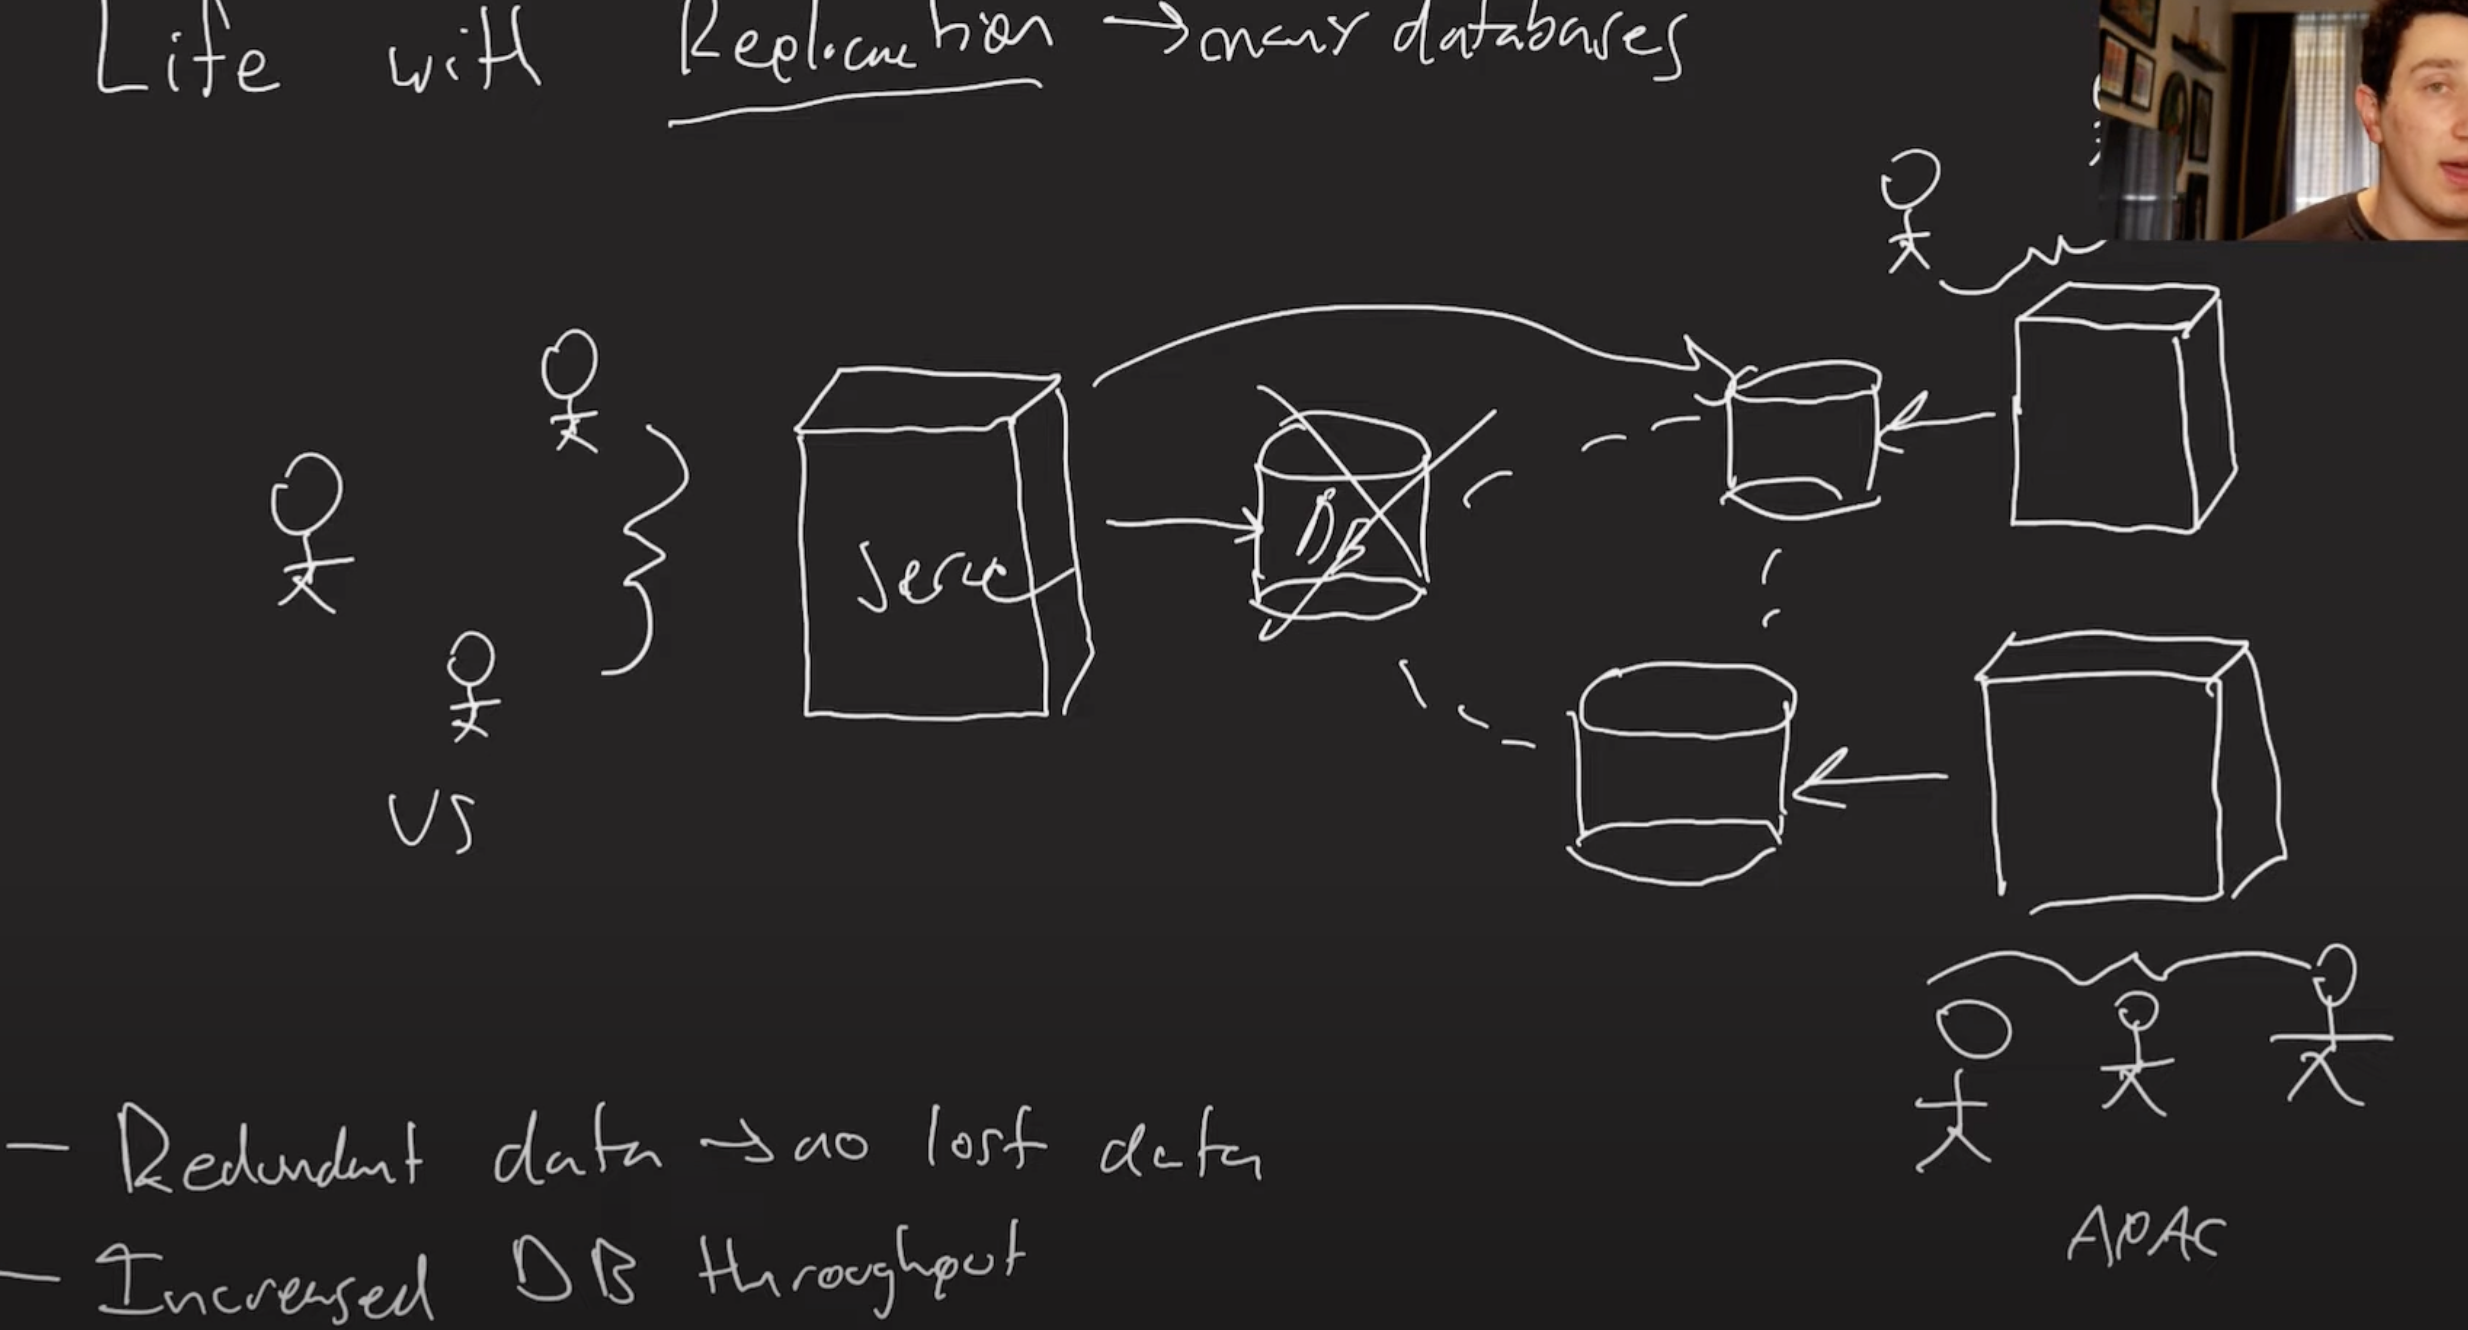 Life with Replication → many databases
Server
DB
US
- Redundant data → no lost data
- Increased DB throughput
APAC